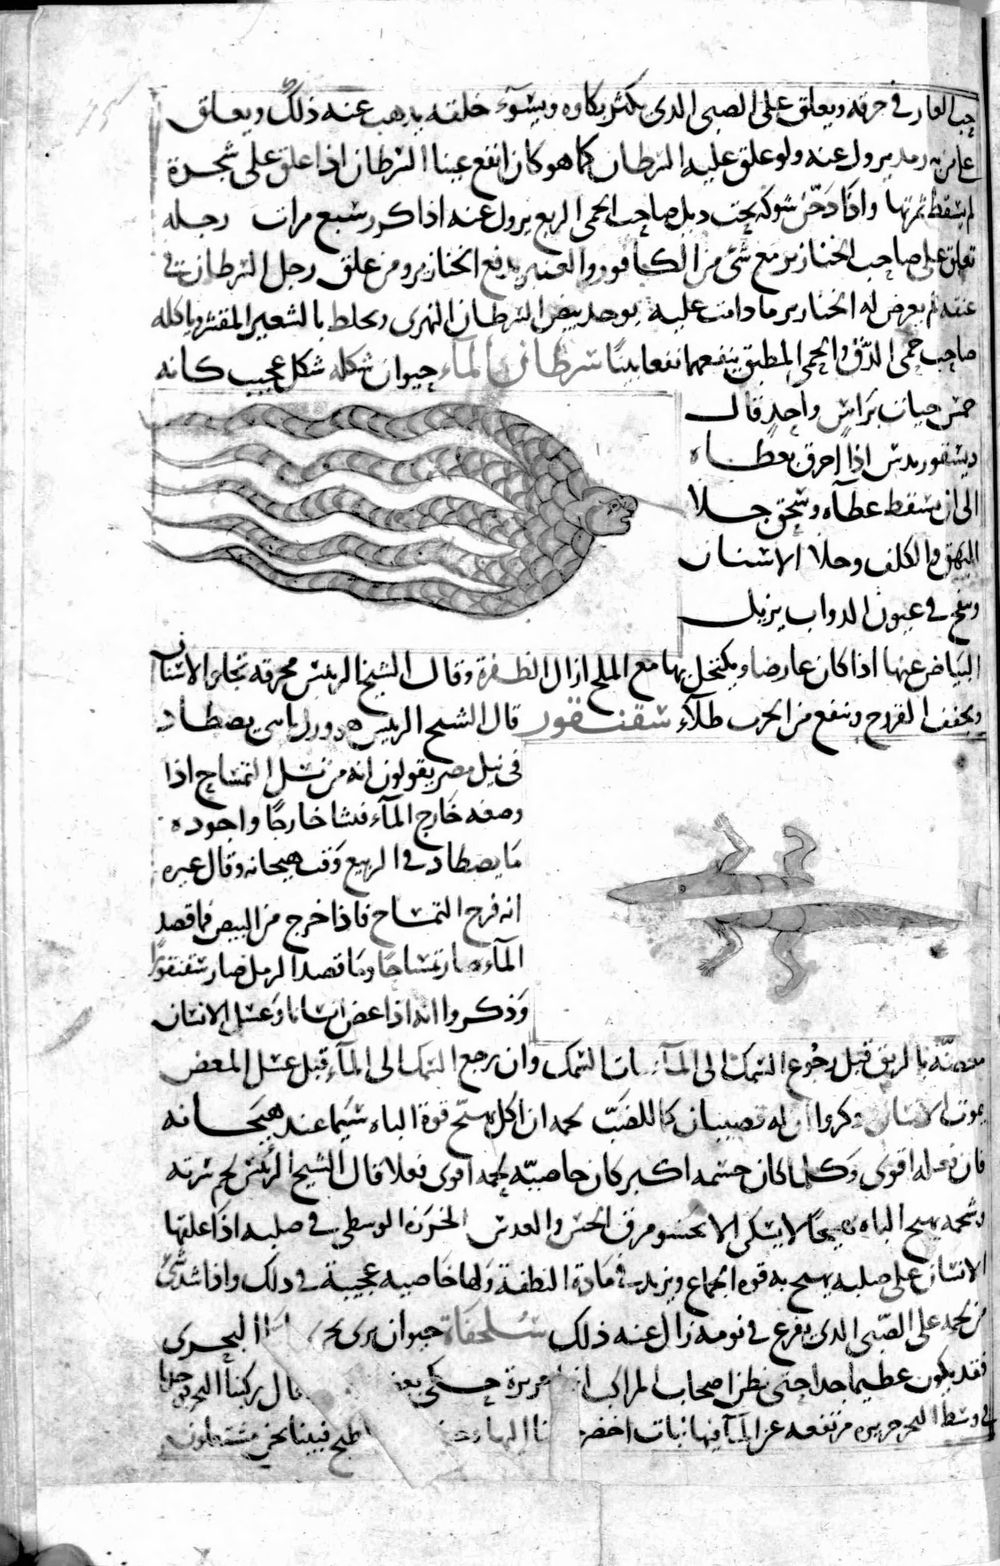 حب الغار في خرقه ويعلق على الصبي الذي يكثر بكاوه ويسوء خلقه يذهب عنه ذلك ويعلق
على من به رمد يزول عنه ولو علق عليه السرطان كما هو كان انفع عينا السرطان اذا علق على شجرة
لم يسقط ثمرتها واذا دخن شوكه تحت ذيل صاحب الحمى الربع يزول عنه اذا كرر سبع مرات رجله
تعلق على صاحب الخنازير مع شي من الكافور والعنبر يدفع الخنازير ومن علق رجل السرطان في
عنقه لم يعرض له الخنازير ما دامت عليه يوخذ بيض السرطان النهري ويخلط بالشعير المقشر وياكله
صاحب حمى الدق والحمى المطبق ينفعهما نفعا بينا سرطان الماء حيوان شكله شكل عجيب كانه
خمس حيات براس واحد قال
ديسقوريدس اذا احرق بغطاه
الى ان يسقط غطاه وسحق جلا
البهق والكلف وجلا الاسنان
ونفخ في عيون الدواب يزيل
البياض عنها اذا كان عارضا ويكتحل بها مع الملح ازال الظفرة وقال الشيخ الرئيس محرقه تجلو الاسنان
ويجفف القروح وينفع من الجرب طلاء سقنقور قال الشيخ الرييس هو ورل مائي يصطاد
في نيل مصر يقولون انه من نسل التمساح اذا
وضعه خارج الماء فنشا خارجا واجوده
ما يصطاد في الربيع وقت هيجانه وقال غيره
انه فرخ التمساح فاذا خرج من البيض فما قصد
الماء صار تمساحا وما قصد الرمل صار سقنقورا
وذكروا انه اذا عض انسانا وغسل الانسان
معضه بالريق قبل رجوع السمك الى الماء مات السمك وان رجع السمك الى الماء قبل غسل المعض
يموت الانسان وذكروا ان له قضيبان كما للضب لحمه ان اكل يهيج قوة الباه سيما عند هيجانه
فان فعله اقوى وكلما كان جسمه اكبر كان خاصية لحمه اقوى فعلا قال الشيخ الرئيس لحم سرته
وشحمه يهيج الباه تهييجا لا يسكن الا بحسو مرق الخس والعدس الخرزة الوسطى في صلبه اذا علقها
الانسان على صلبه يهيج به قوه الجماع ويزيد في مادة النطفة ولها خاصيه عجيبة في ذلك واذا شد شي
من لحمه على الصبي الذي يفزع في نومه زال عنه ذلك سلحفاة حيوان بري بحري اما البحري
فقد يكون عظيما جدا حتى يظن اصحاب المراكب انها جزيرة حكى بعض قال ركبنا البحر فوجدنا
في وسط البحر جزيره مرتفعه عن الماء فيها نبات اخضر اليها فبينا نحن مشتغلون